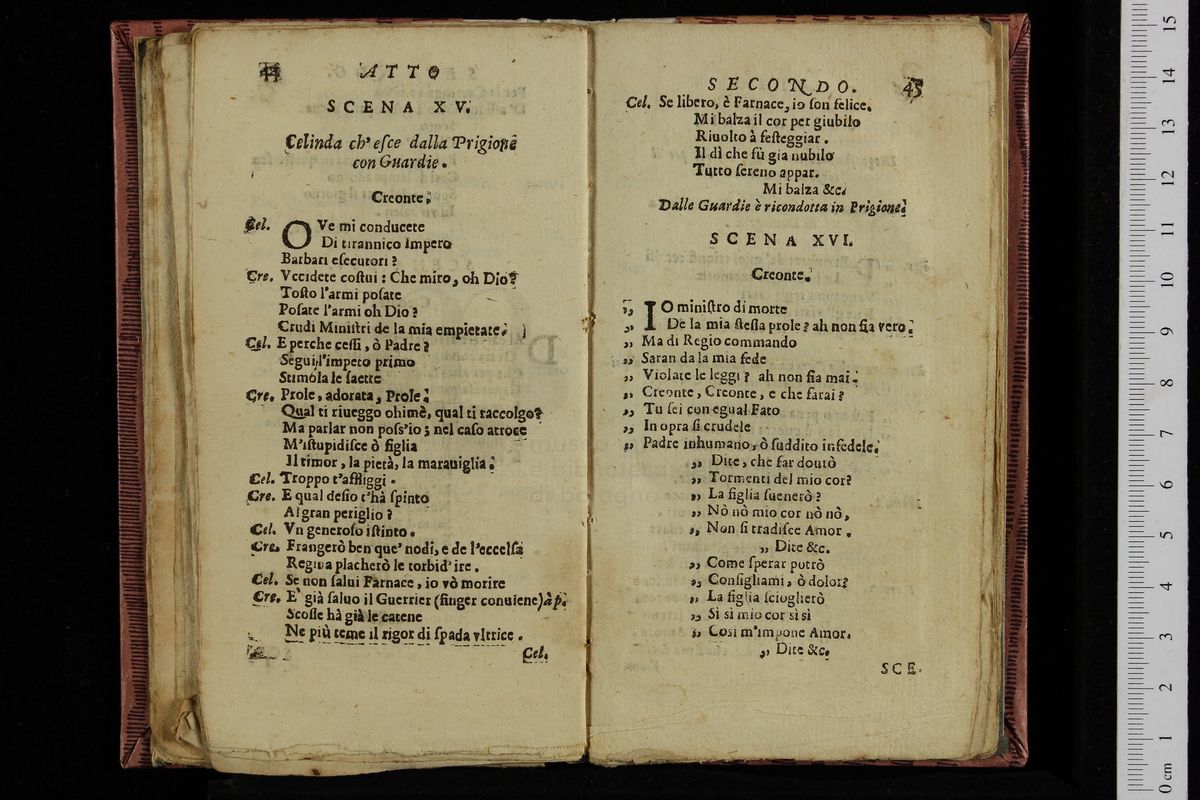 44 ATTO
SCENA XV.
Celinda ch' esce dalla Prigione
con Guardie.
Creonte.
Cel. OVe mi conducete
Di tirannico Impero
Barbari esecutori?
Cre. Vccidete costui: Che miro, oh Dio?
Tosto l'armi posate
Posate l'armi oh Dio?
Crudi Ministri de la mia empietate.
Cel. E perche cessi, ò Padre?
Segui, l'impeto primo
Stimola le saette
Cre. Prole, adorata, Prole.
Qual ti riueggo ohimè, qual ti raccolgo?
Ma parlar non poss'io; nel caso atroce
M'istupidisce ò figlia
Il timor, la pietà, la marauiglia.
Cel. Troppo t'affliggi.
Cre. E qual desio t'hà spinto
Al gran periglio?
Cel. Vn generoso istinto.
Cre. Frangerò ben que' nodi, e de l'eccelsa
Regina placherò le torbid' ire.
Cel. Se non salui Farnace, io vò morire
Cre. E' già saluo il Guerrier (finger conuiene) à p.
Scosse hà già le catene
Ne più teme il rigor di spada vltrice.
Cel.
SECONDO. 45
Cel. Se libero, è Farnace, io son felice.
Mi balza il cor per giubilo
Riuolto à festeggiar.
Il dì che fù gia nubilo
Tutto sereno appar.
Mi balza &c.
Dalle Guardie è ricondotta in Prigione.
SCENA XVI.
Creonte.
„ IO ministro di morte
„ De la mia stessa prole? ah non sia vero.
„ Ma di Regio commando
„ Saran da la mia fede
„ Violate le leggi? ah non sia mai.
„ Creonte, Creonte, e che farai?
„ Tu sei con egual Fato
„ In opra si crudele
„ Padre inhumano, ò suddito infedele.
„ Dite, che far dourò
„ Tormenti del mio cor?
„ La figlia suenerò?
„ Nò nò mio cor nò nò,
„ Non si tradisce Amor.
„ Dite &c.
„ Come sperar potrò
„ Consigliami, ò dolor?
„ La figlia scioglierò
„ Sì sì mio cor sì sì
„ Così m'impone Amor.
„ Dite &c.
SCE.
0 cm 1 2 3 4 5 6 7 8 9 10 11 12 13 14 15